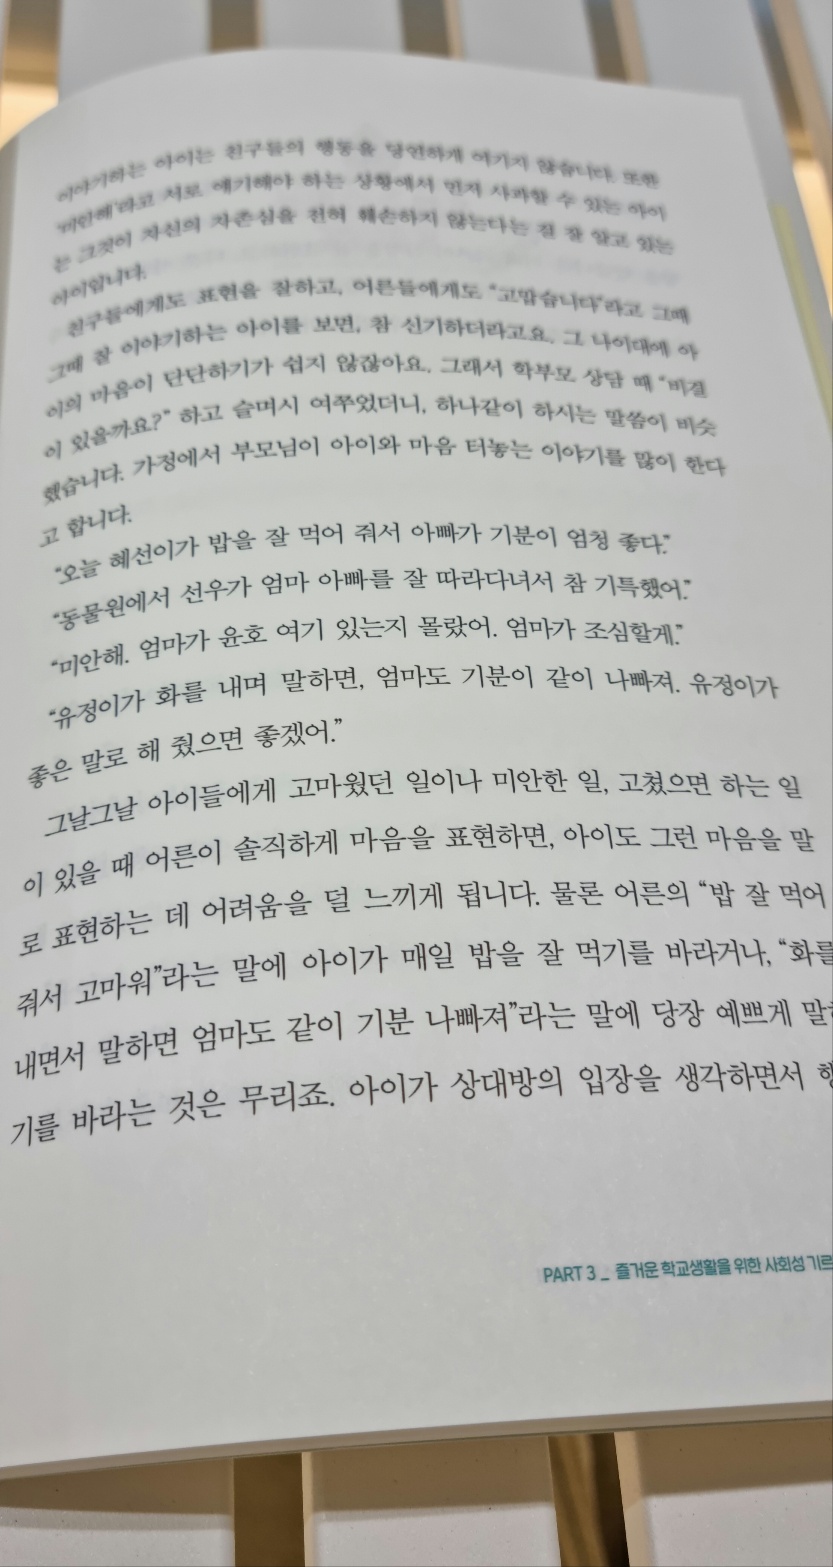 이야기하는 아이는 친구들의 행동을 당연하게 여기지 않습니다. 또한
'미안해'라고 서로 얘기해야 하는 상황에서 먼저 사과할 수 있는 아이
는 그것이 자신의 자존심을 전혀 훼손하지 않는다는 걸 잘 알고 있는
아이입니다.
친구들에게도 표현을 잘하고, 어른들에게도 “고맙습니다”라고 그때
그때 잘 이야기하는 아이를 보면, 참 신기하더라고요. 그 나이대에 아
이의 마음이 단단하기가 쉽지 않잖아요. 그래서 학부모 상담 때 “비결
이 있을까요?” 하고 슬며시 여쭈었더니, 하나같이 하시는 말씀이 비슷
했습니다. 가정에서 부모님이 아이와 마음 터놓는 이야기를 많이 한다
고 합니다.
“오늘 혜선이가 밥을 잘 먹어 줘서 아빠가 기분이 엄청 좋다.”
“동물원에서 선우가 엄마 아빠를 잘 따라다녀서 참 기특했어.”
“미안해. 엄마가 윤호 여기 있는지 몰랐어. 엄마가 조심할게.”
“유정이가 화를 내며 말하면, 엄마도 기분이 같이 나빠져. 유정이가
좋은 말로 해 줬으면 좋겠어.”
그날그날 아이들에게 고마웠던 일이나 미안한 일, 고쳤으면 하는 일
이 있을 때 어른이 솔직하게 마음을 표현하면, 아이도 그런 마음을 말
로 표현하는 데 어려움을 덜 느끼게 됩니다. 물론 어른의 “밥 잘 먹어
줘서 고마워”라는 말에 아이가 매일 밥을 잘 먹기를 바라거나, “화를
내면서 말하면 엄마도 같이 기분 나빠져”라는 말에 당장 예쁘게 말
기를 바라는 것은 무리죠. 아이가 상대방의 입장을 생각하면서
PART 3 _ 즐거운 학교생활을 위한 사회성 기르